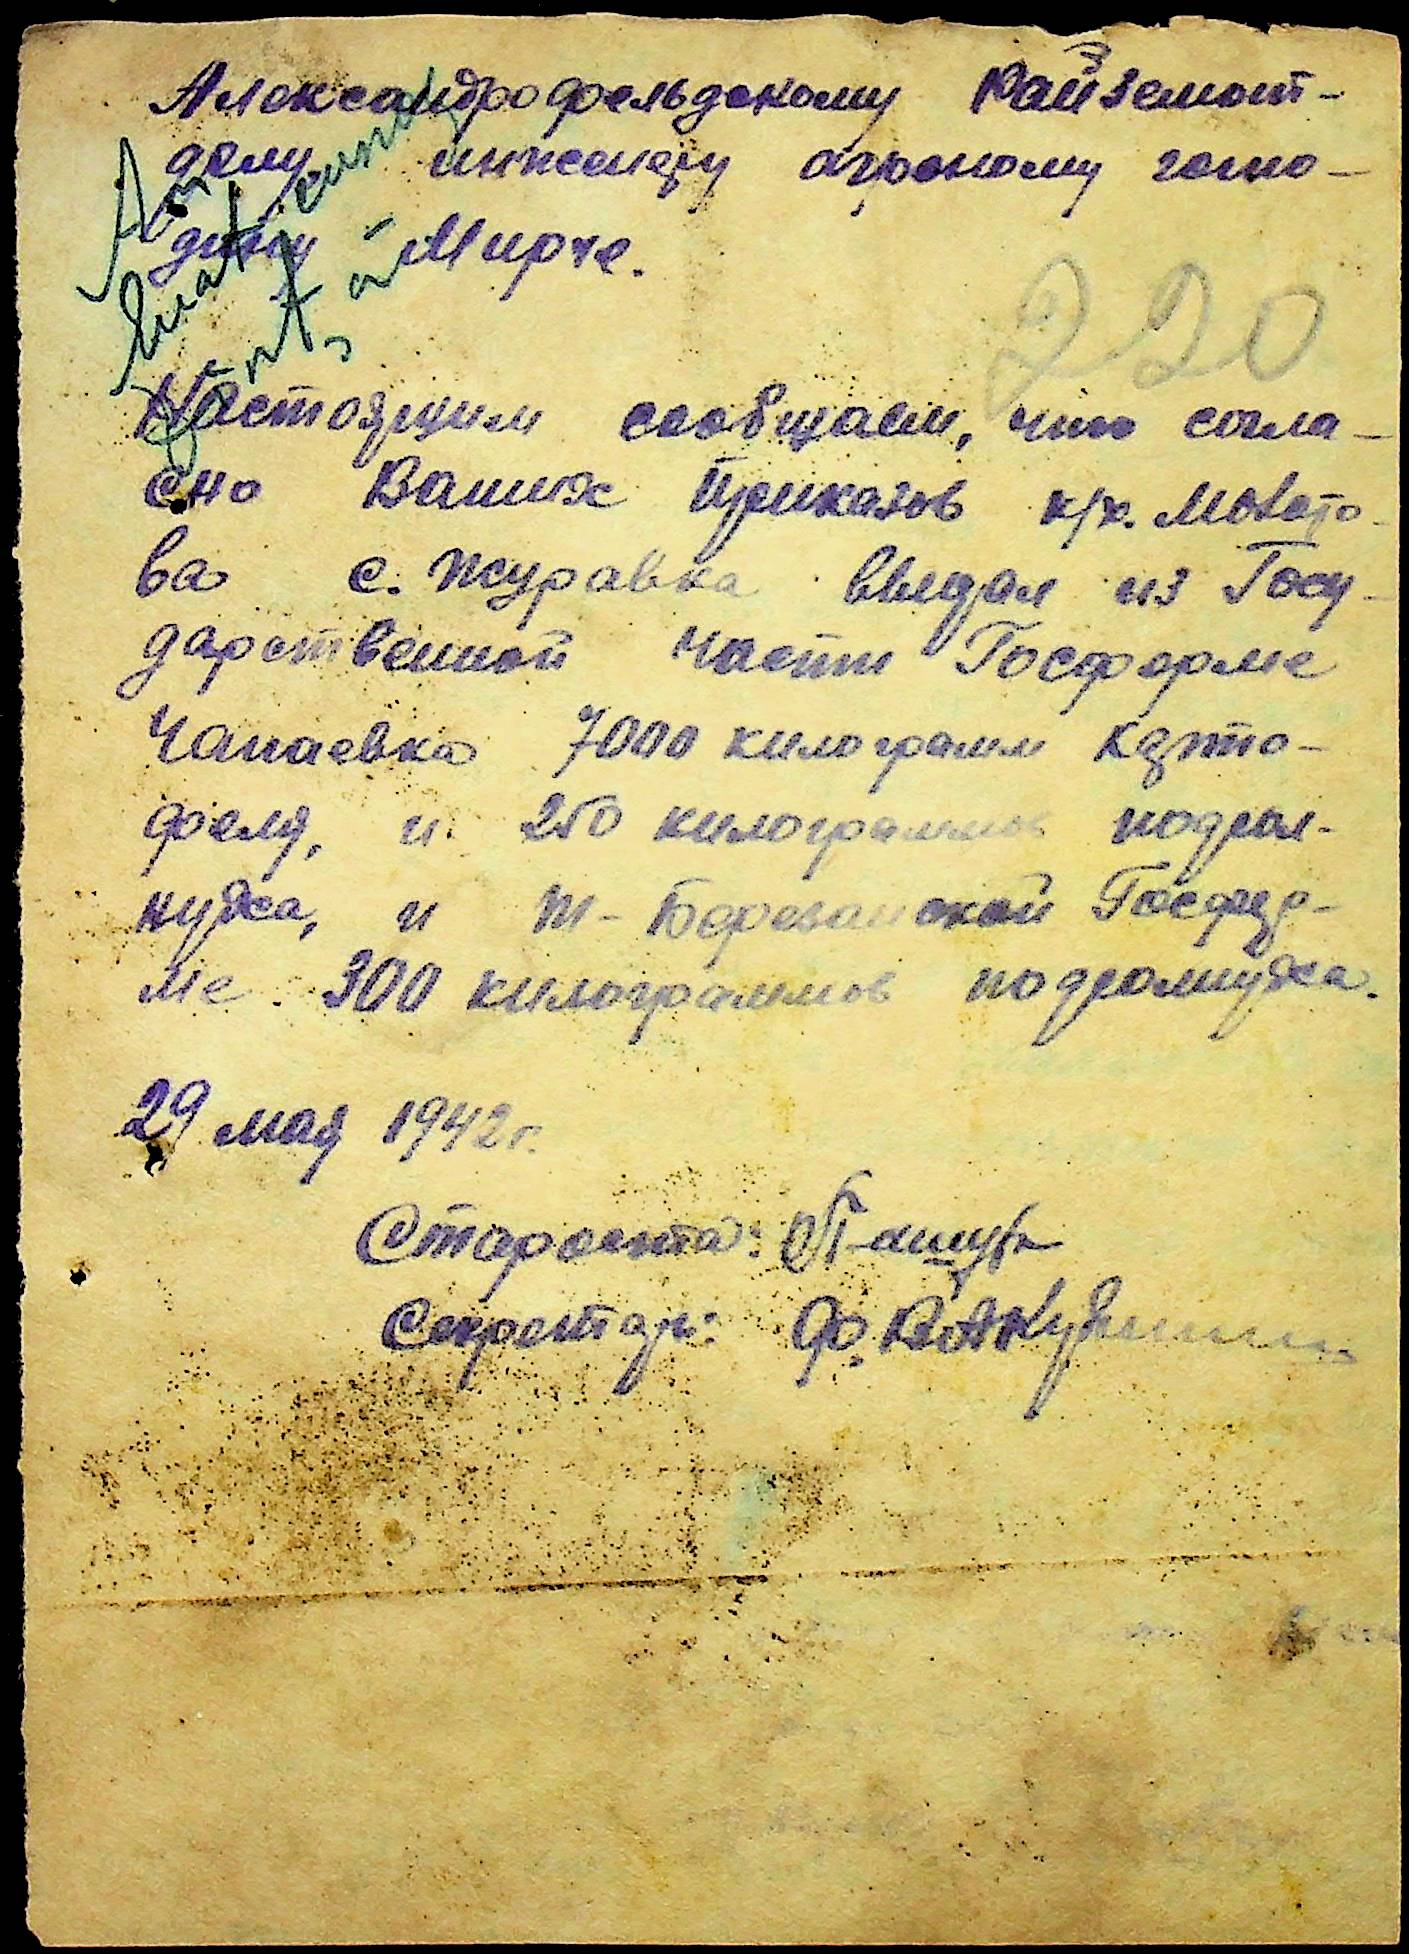 Александрофельдскому Райземот-
делу инженеру агроному госпо-
дину Мирче.
220
Настоящим сообщаем, что согла-
сно Ваших Приказов к/х.
ва с. Журавка выдал из Госу-
дарственной части Госферме
Чапаевка 7000 килограмм карто-
феля, и 250 килограммов подсол-
нуха, и Березанской Госфер-
ме 300 килограммов подсолнуха.
29 мая 1942 г.
Староста:
Секретарь: